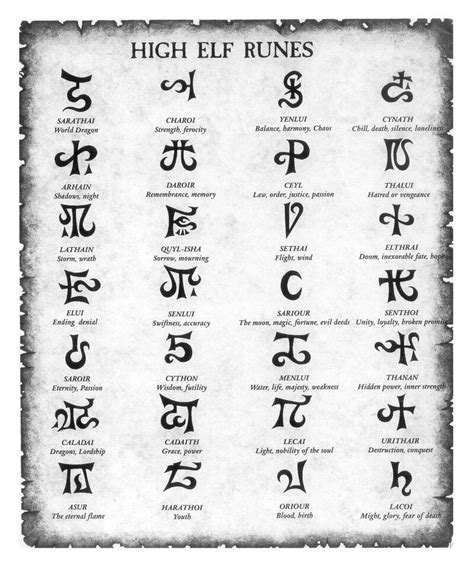 HIGH ELF RUNES
SARATHAI
World Dragon
CHAROI
Strength, ferocity
YENLUI
Balance, harmony, Chaos
CYNATH
Chill, death, silence, loneliness
ARHAIN
Shadows, night
DAROIR
Remembrance, memory
CEYL
Law, order, justice, passion
THALUI
Hatred or vengeance
LATHAIN
Storm, wrath
QUYL-ISHA
Sorrow, mourning
SETHAI
Flight, wind
ELTHRAI
Doom, inexorable fate, hope
ELUI
Ending denial
SENLUI
Swiftness, accuracy
SARIOUR
The moon, magic, fortune, evil deeds
SENTHOI
Unity, loyalty, broken promises
SAROIR
Eternity, Passion
CYTHON
Wisdom, futility
MENLUI
Water, life, majesty, weakness
THANAN
Hidden power, inner strength
CALADAI
Dragons, Lordship
CADAITH
Grace, power
LECAI
Light, nobility of the soul
URITHAIR
Destruction, conquest
ASUR
The eternal flame
HARATHOI
Youth
ORIOUR
Blood, birth
LACOI
Might, glory, fear of death